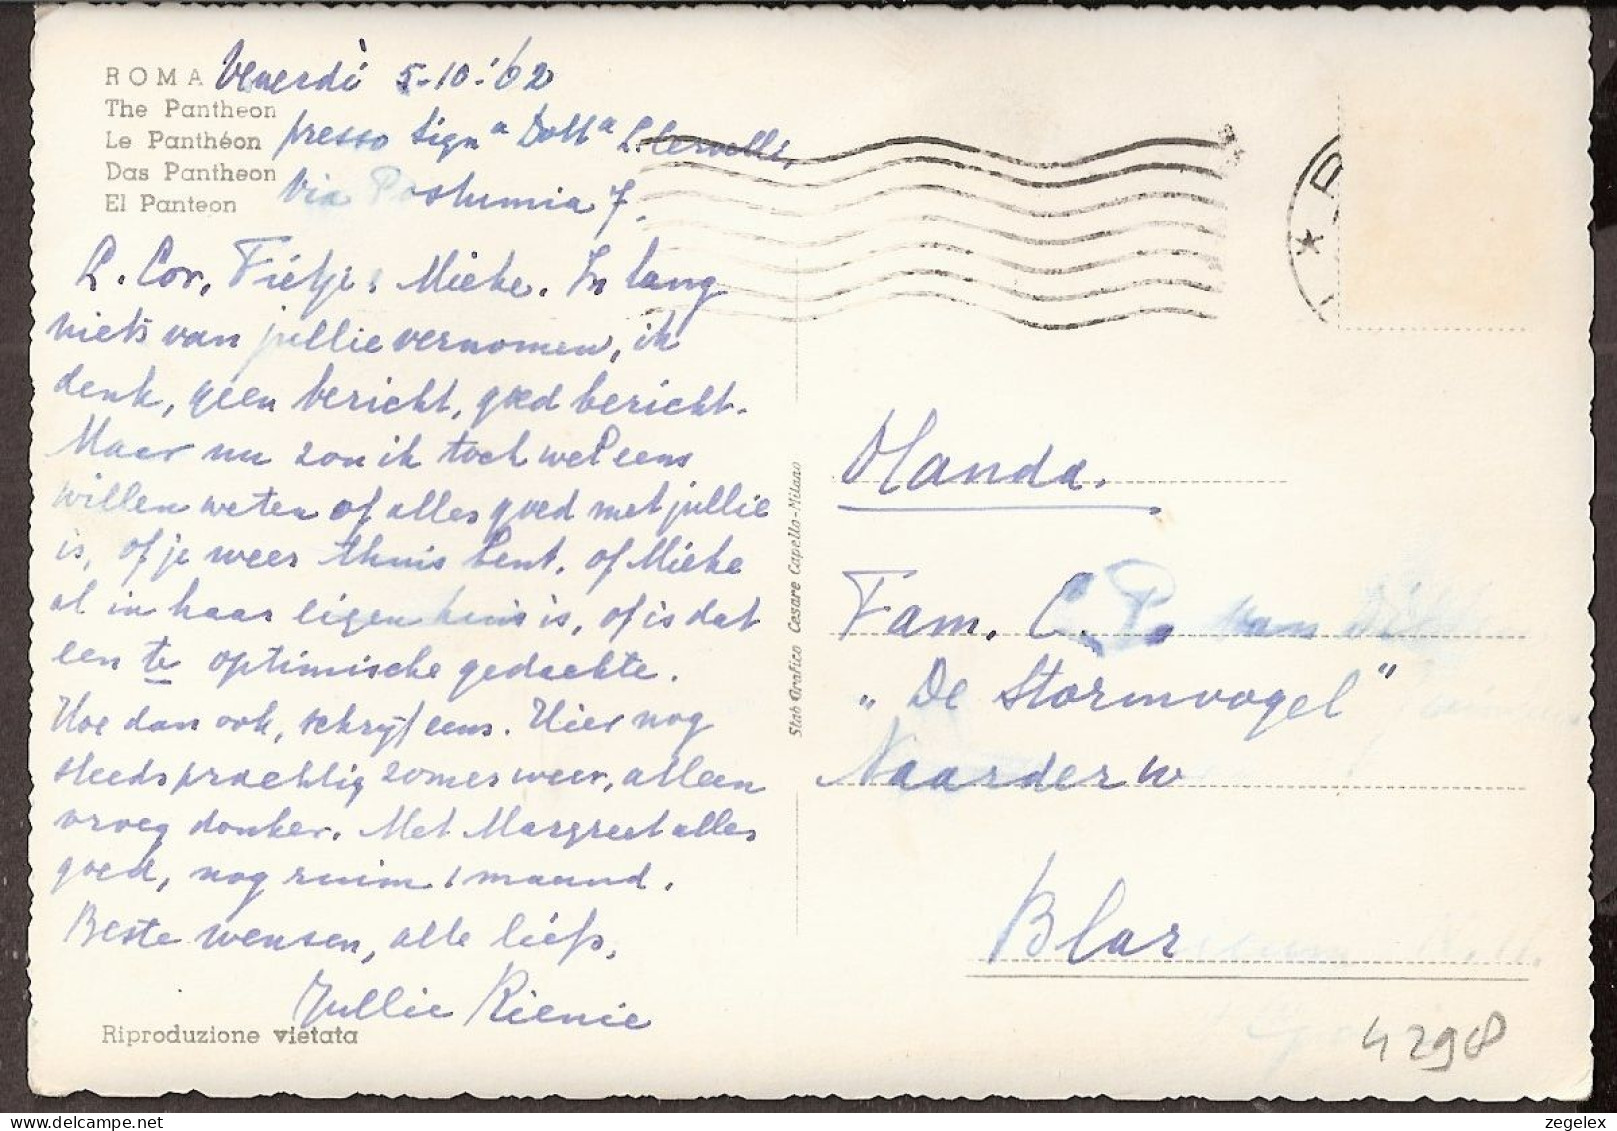 ROMA Venerdì 5-10-'62
The Pantheon
Le Panthéon presso Signa Dotta L.
Das Pantheon
El Panteon Via Postumia 7.
L. Cor, Fiétje, Mieke. In lang
niets van jullie vernomen, ik
denk, geen bericht, goed bericht.
Maar nu zou ik toch wel eens
willen weten of alles goed met jullie
is, of je weer thuis bent, of Mieke
al in haar eigen huis is, of is dat
een te optimische gedachte.
Hoe dan ook, schrijf eens. Hier nog
steeds prachtig zomerweer, alleen
vroeg donker. Met Margreet alles
goed, nog ruim 1 maand.
Beste wensen, alle liefs,
Jullie Rienie
Riproduzione vietata
Stab Grafico Cesare Capello-Milano
R
Olanda.
Fam. C. P. van
„De Stormvogel"
Naarderw
Blar
4298
zegelex